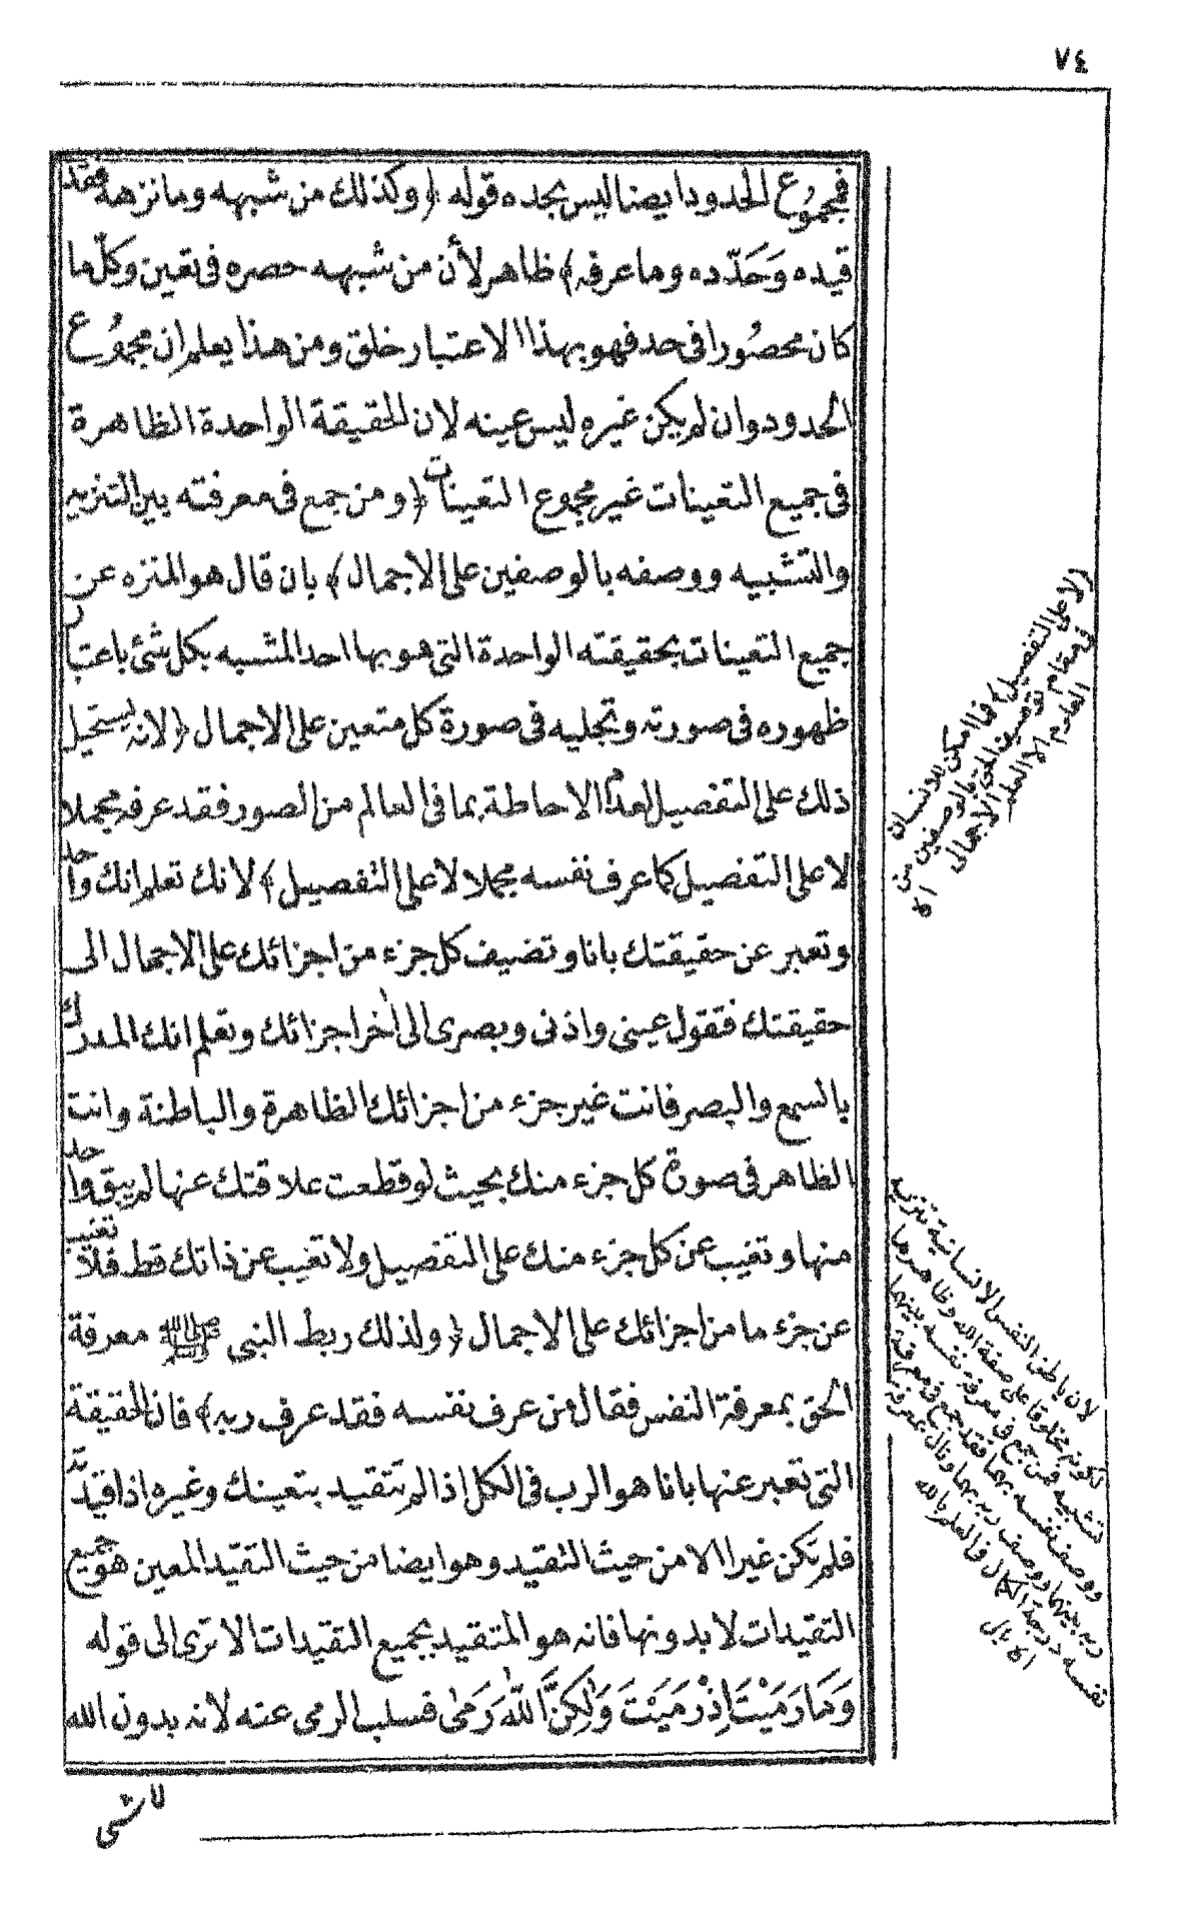 ٧٤
فمجموع الحدود ايضا ليس بحده قوله ﴿ وكذلك من شبهه وما نزهه فقد
قيده وَحَدّده وما عرفه ﴾ ظاهر لأن من شبهه حصره فى تعين وكلّ ما
كان محصُورا فى حد فهو بهذا الاعتبار خلق ومن هذا يعلم ان مجموُع
الحدود وان لم يكن غيره ليس عينه لان الحقيقة الواحدة الظاهرة
فى جميع التعينات غير مجموع التعينات ﴿ ومن جمع فى معرفته بين التنزيه
والتشبيه ووصفه بالوصفين على الاجمال ﴾ بان قال هو المنزه عن
جميع التعينات بحقيقته الواحدة التى هو بها احد المشبه بكل شئ باعتبار
ظهوره فى صورته وتجليه فى صورة كل متعين على الاجمال ﴿ لانه يستحيل
ذلك على التفصيل لعدم الاحاطة بما فى العالم من الصور فقد عرفه مجملا
لا على التفصيل كما عرف نفسه مجملا لا على التفصيل ﴾ لانك تعلم انك واحد
وتعبر عن حقيقتك بانا وتضيف كل جزء من اجزائك على الاجمال الى
حقيقتك فتقول عينى واذنى وبصرى الى اٰخر اجزائك وتعلم انك المدرك
بالسمع والبصر فانت غير جزء من اجزائك الظاهرة والباطنة وانت
الظاهر فى صورة كل جزء منك بحيث لو قطعت علاقتك عنها لم يبق واحد
منها وتغيب عن كل جزء منك على التفصيل ولا تغيب عن ذاتك قط فلا تغيب
عن جزء ما من اجزائك على الاجمال ﴿ ولذلك ربط النبى ﷺ معرفة
الحق بمعرفة النفس فقال من عرف نفسه فقد عرف ربه ﴾ فان الحقيقة
التى تعبر عنها بانا هو الرب فى الكل اذا لم تتقيد بتعينك وغيره اذا قيدته
فلم تكن غيرا الا من حيث التقيد وهو ايضا من حيث التقيد المعين هو جميع
التقيدات لا بدونها فانه هو المتقيد بجميع التقيدات الا ترى الى قوله
وَمَا رَمَيْتَ اِذْ رَمَيْتَ وَلٰكِنَّ اللّٰهَ رَمٰى فسلب الرمى عنه لانه بدون الله
لا شى
(لا على التفصيل) فما امكن للانسان
فى مقام توصيف الحق بالوصفين من
العلوم الا العلم الاجمالى
لان باطن النفس الانسانية تنزيه
لكونه مخلوقا على صفة الله وظاهرها
تشبيه فمن جمع فى معرفة نفسه بينهما
ووصف نفسه بهما فقد جمع فى معرفة
ربه بينهما ووصف ربه بهما ونال بمعرفة
نفسه درجة الكمال فى العلم بالله
اه بالى